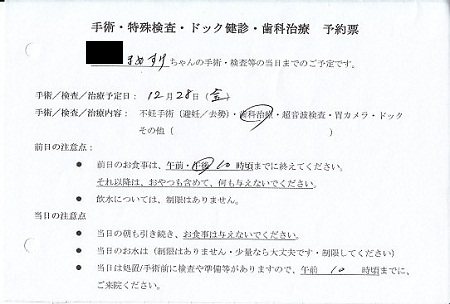 手術・特殊検査・ドック健診・歯科治療　予約票
まめすけちゃんの手術・検査等の当日までのご予定です。
手術／検査／治療予定日：　12月28日（金）
手術／検査／治療内容：　不妊手術（避妊／去勢）・歯科治療・超音波検査・胃カメラ・ドック
その他（　　　　　　　　　　　　　　）
前日の注意点：
●　前日のお食事は、午前・午後 10 時頃までに終えてください。
それ以降は、おやつも含めて、何も与えないでください。
●　飲水については、制限はありません。
当日の注意点
●　当日の朝も引き続き、お食事は与えないでください。
●　当日のお水は（制限はありません・少量なら大丈夫です・制限してください）
●　当日は処置/手術前に検査や準備等がありますので、午前　10　時頃までに、
ご来院ください。